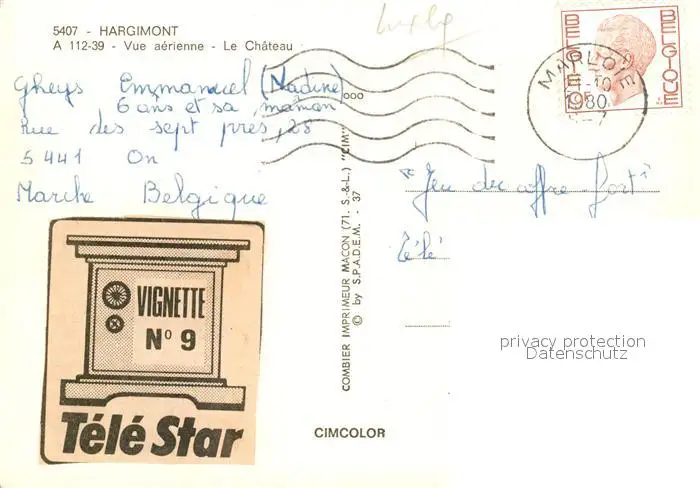 5407 - HARGIMONT
A 112-39 - Vue aérienne - Le Château
Gheys Emmanuel (Nadine)
6 ans et sa maman
Rue des sept près, 28
5441 On
Marche Belgique
VIGNETTE
N° 9
Télé Star
COMBIER IMPRIMEUR MACON (71. S.-&L.) "CIM"
© by S.P.A.D.E.M. - 37
CIMCOLOR
BELGIE
BELGIQUE
MARLOIE
-10
1980
"Jeu du coffre fort"
Télé
privacy protection
Datenschutz